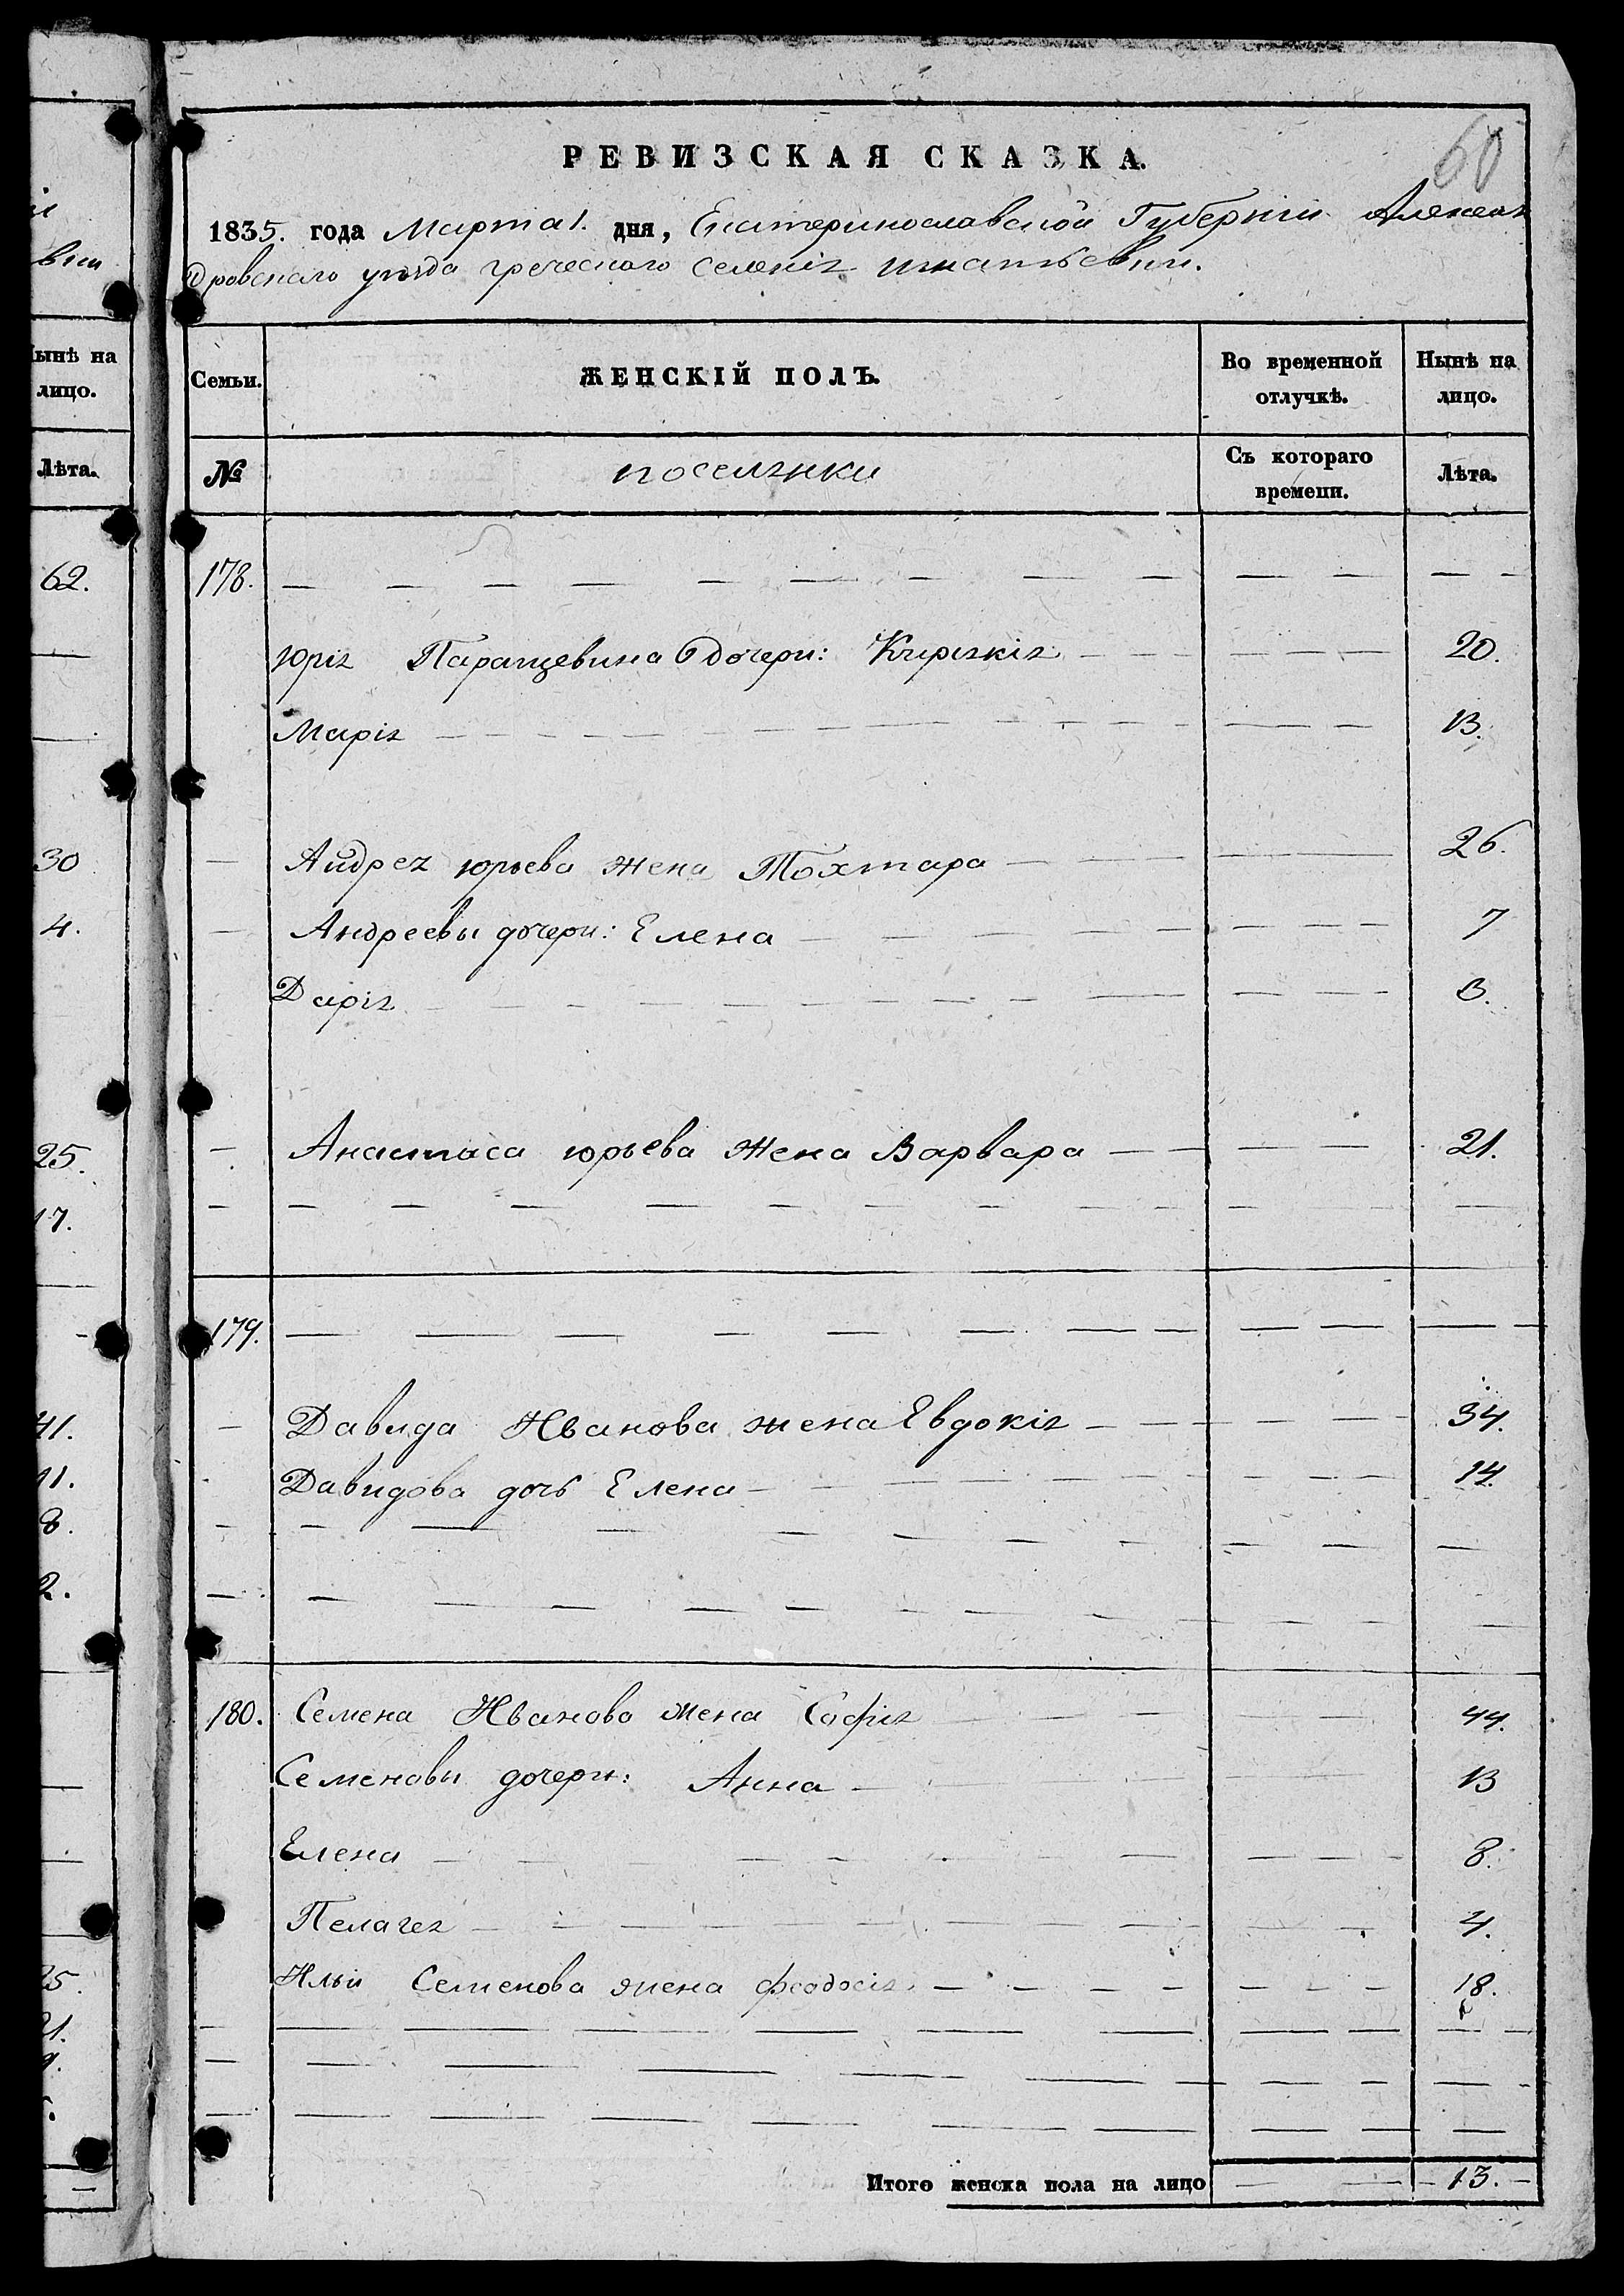 60
РЕВИЗСКАЯ СКАЗКА.
1835. года Марта 1. дня, Екатеринославской Губерніи Алексан
дровскаго уѣзда греческаго селенія Игнатьевки.
Семьи. ЖЕНСКІЙ ПОЛЪ. Во временной отлучкѣ. Нынѣ на лицо.
№ поселянки Съ котораго времени. Лѣта.
178. — — — — — — — — — — — — —
Юрія дочери: Кирякія — — — — — — 20.
Марія — — — — — — — — — — — — 13.
— Андрея юрьева жена Тохтара — — — — 26.
— Андреевы дочери: Елена — — — — — — — — 7
Дарія — — — — — — — — — — — — 3.
— Анастаса юрьева жена Варвара — — — — 21.
— — — — — — — — — — — — — —
179. — — — — — — — — — — — — —
— Давида Иванова жена Евдокія — — — — — 34.
Давидова дочь Елена — — — — — — — — 14.
— — — — — — — — — — —
— — — — — — — — — — — — —
180. Семена Иванова жена Софія — — — — 44.
Семеновы дочери: Анна — — — — 13
Елена — — — — — — — — — 8.
Пелагея — — — — — — — — 4.
Ильи Семенова жена Феодосія — — — — — — — 18.
— — — — — — — — — — — —
— — — — — — — — — — —
— — — — — — — — — —
Итого женска пола на лицо — — 13. —
ынѣ на
лицо.
Лѣта.
62.
30
4.
25.
17.
41.
11.
8.
2.
25.
21.